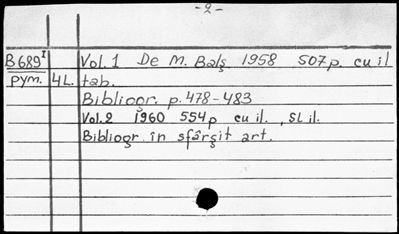 -2-
B689 I Vol. 1 De M. Balş 1958 507 p. cu il
рум. 4L. tab.
Bibliogr. p. 478-483
Vol. 2 1960 554 p cu il., şi il.
Bibliogr. în sfârşit art.